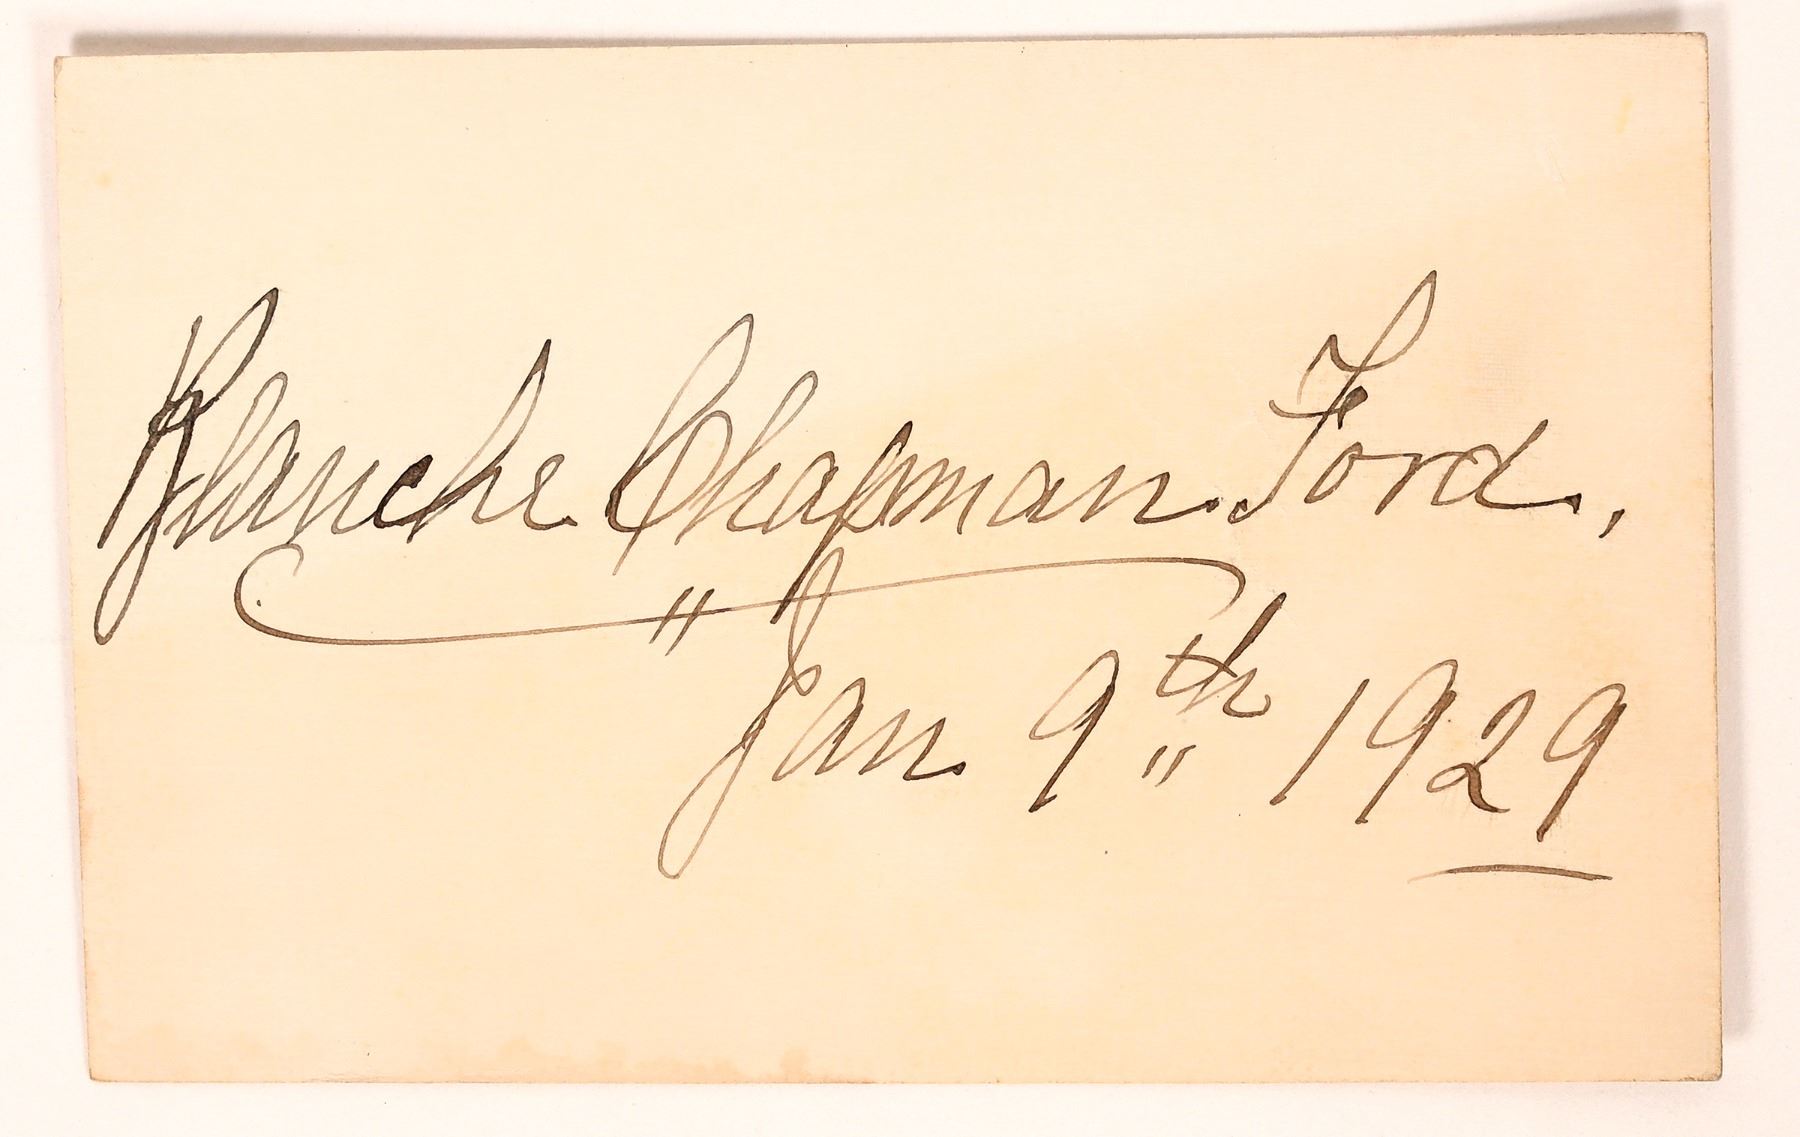 Blanche Chapman Ford,
Jan 9th 1929